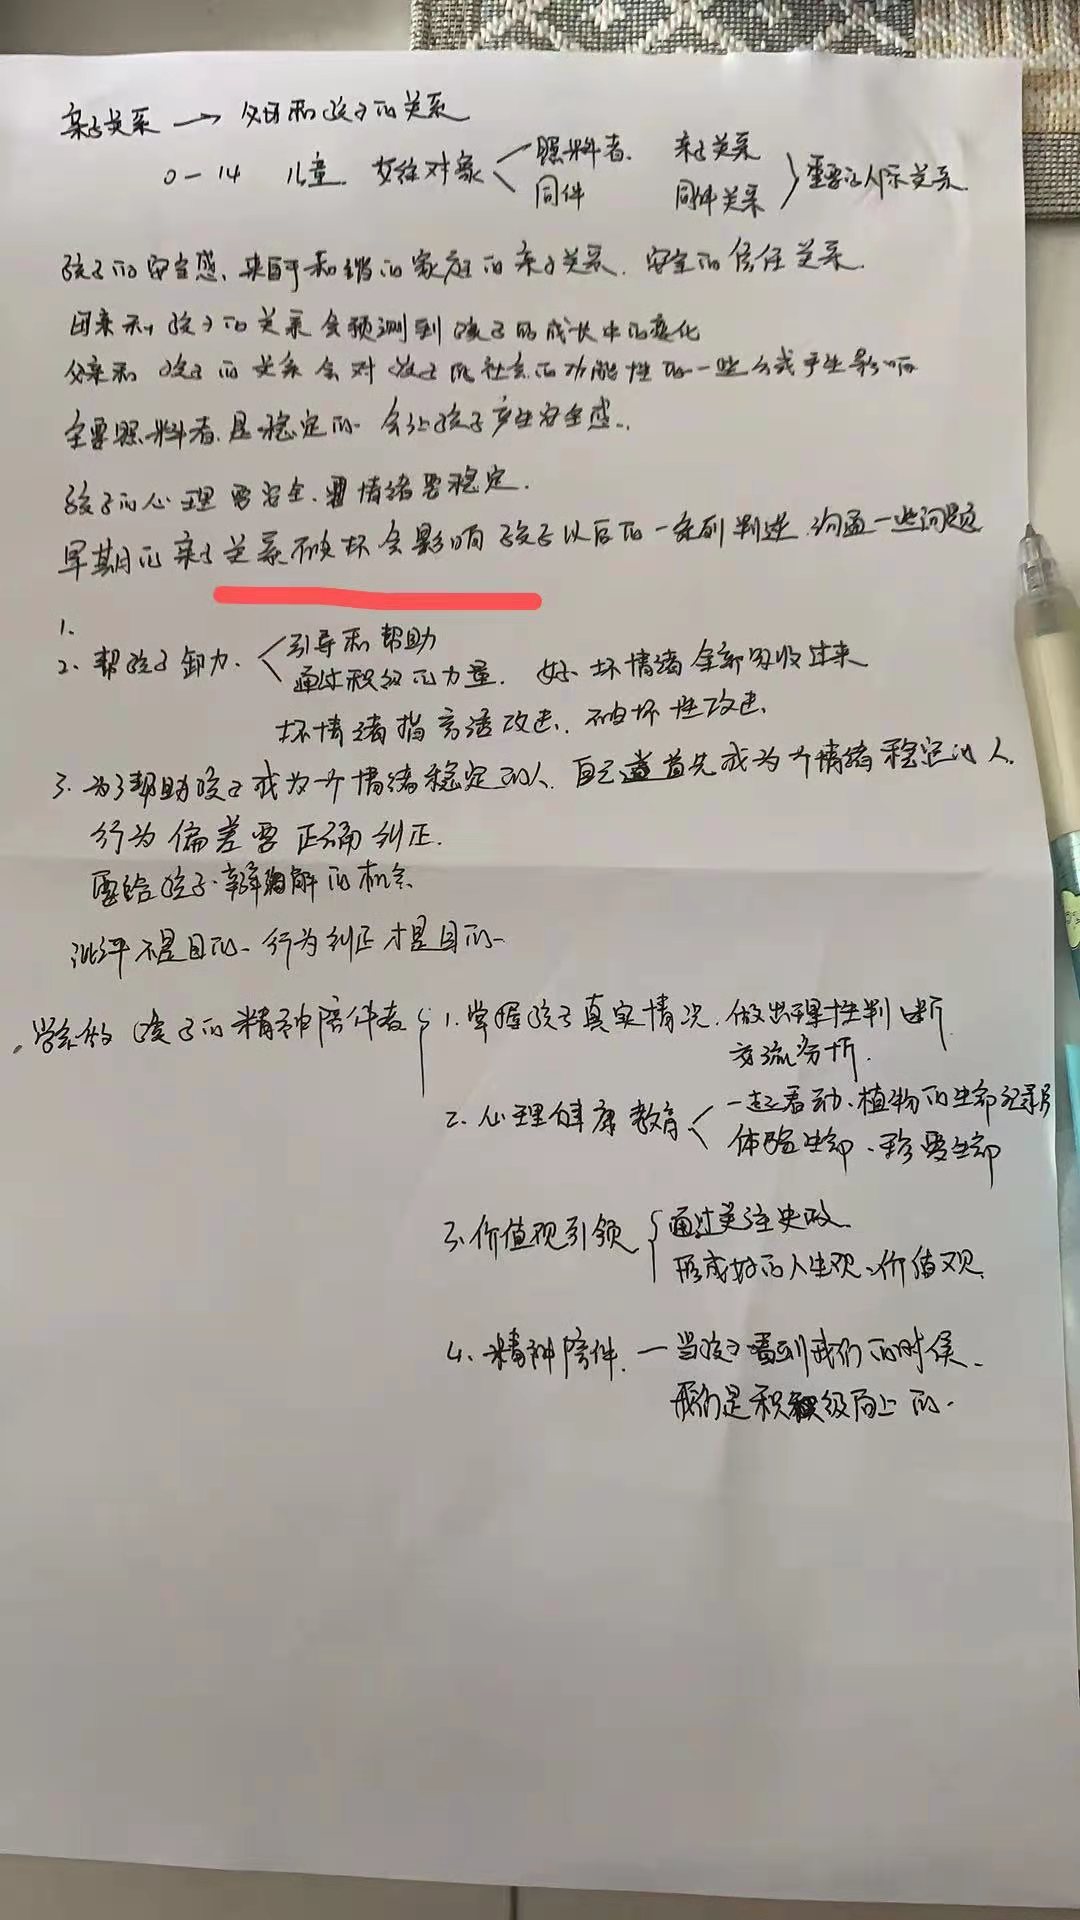 亲子关系 → 父母和孩子的关系
0-14 儿童 交往对象 照料者 亲子关系 重要的人际关系
同伴 同伴关系
孩子的安全感、来自于和谐的家庭的亲子关系. 安全的信任关系.
母亲和孩子的关系会预测到孩子的成长中的变化
父亲和孩子的关系会对孩子的社会的功能性的一些公式产生影响
主要照料者是稳定的 会让孩子产生安全感..
孩子的心理要安全.要情绪要稳定.
早期的亲子关系破坏会影响孩子以后的一系列叛逆.沟通一些问题
1.
2. 帮孩子卸力. 引导和帮助
通过积极的力量. 好坏情绪全部吸收过来
坏情绪指言语攻击、破坏性攻击.
3. 为了帮助孩子成为一个情绪稳定的人. 自己首先成为个情绪稳定的人.
行为偏差要正确纠正.
要给孩子辩解的机会.
批评不是目的-行为纠正才是目的-
学会做孩子的精神陪伴者 1.掌握孩子真实情况.做出理性判断.
交流分析.
2.心理健康教育 一起看动、植物的生命记录片
体验生命、珍爱生命
3.价值观引领 通过关注史政.
形成好的人生观、价值观.
4、精神陪伴.一当孩子看到我们的时候、
我们是积极向上的.